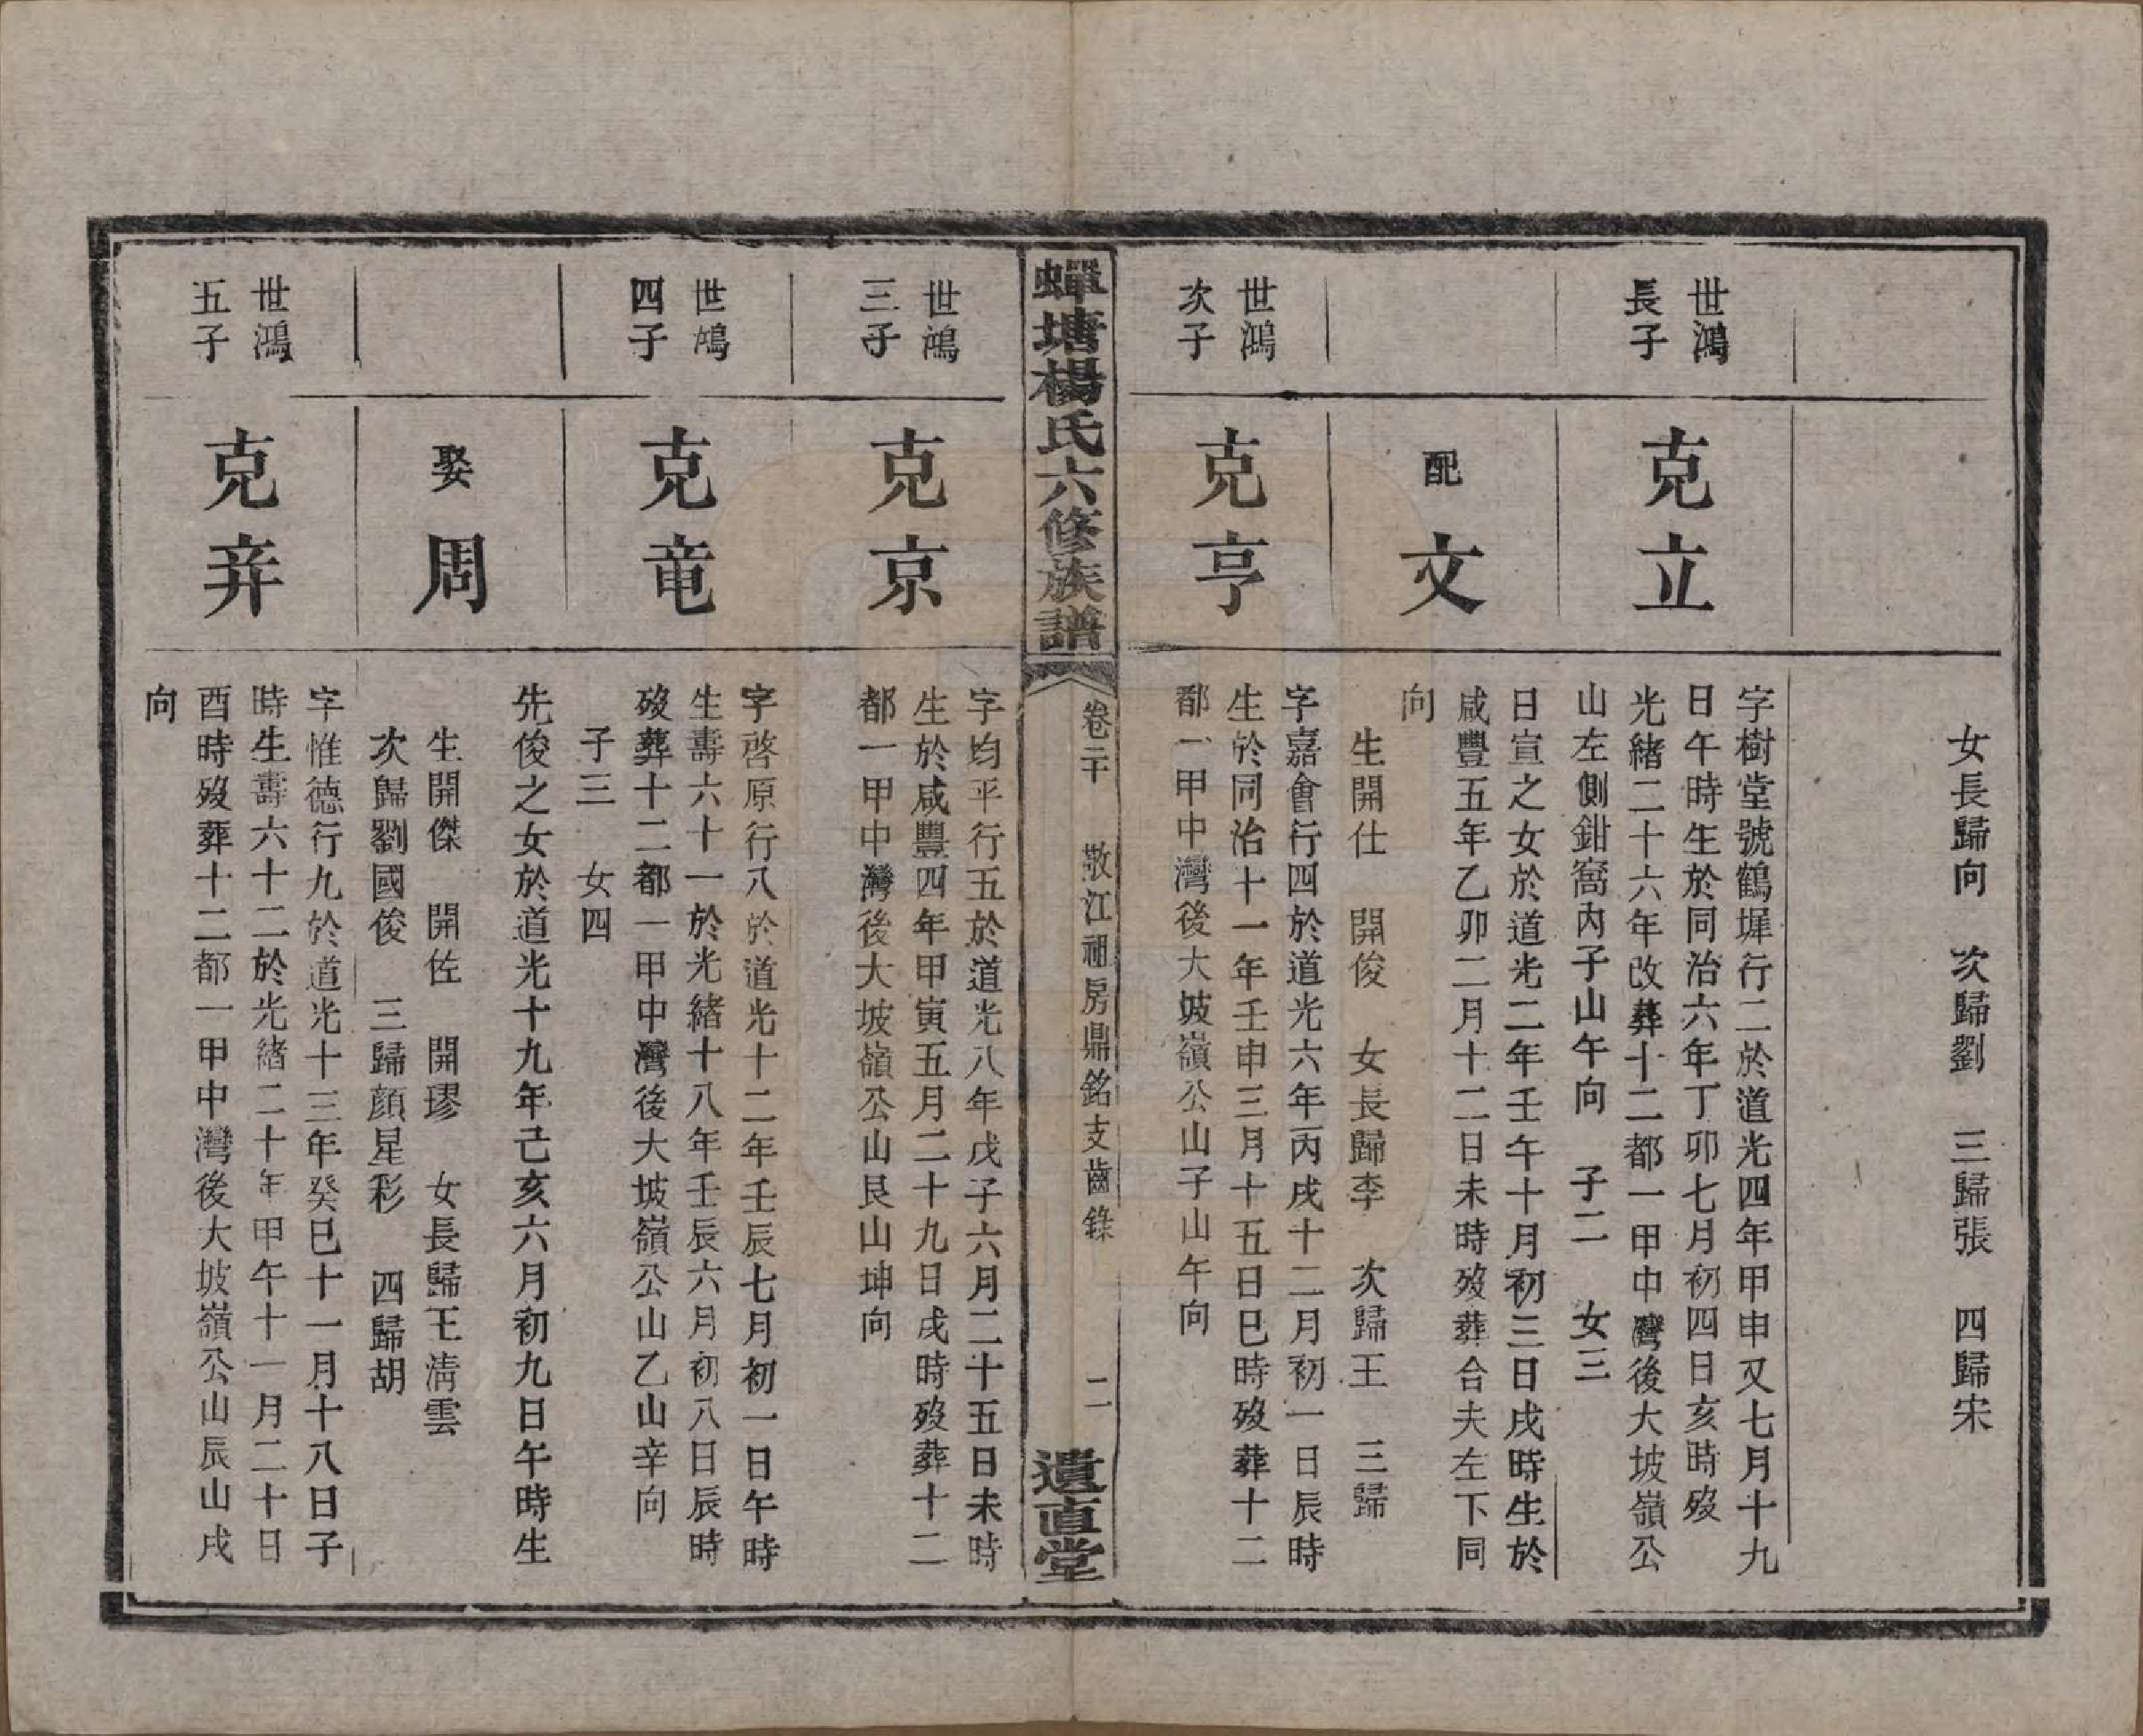 女長歸向　次歸劉　三歸張　四歸宋
世鴻
長子
克立
字樹堂號鶴墀行二於道光四年甲申又七月十九
日午時生於同治六年丁卯七月初四日亥時歿
光緒二十六年改葬十二都一甲中灣後大坡嶺公
山左側鉗窩內子山午向　子二　女三
配文
日宣之女於道光二年壬午十月初三日戌時生於
咸豐五年乙卯二月十二日未時歿葬合夫左下同
向
生開仕　開俊　女長歸李　次歸王　三歸
世鴻
次子
克亨
字嘉會行四於道光六年丙戌十二月初一日辰時
生於同治十一年壬申三月十五日巳時歿葬十二
都一甲中灣後大坡嶺公山子山午向
蟬塘楊氏六修族譜
卷二十　敬江祖房鼎銘支齒錄　二
遺直堂
世鴻
三子
克京
字均平行五於道光八年戊子六月二十五日未時
生於咸豐四年甲寅五月二十九日戌時歿葬十二
都一甲中灣後大坡嶺公山艮山坤向
世鴻
四子
克竜
字啓原行八於道光十二年壬辰七月初一日午時
生壽六十一於光緒十八年壬辰六月初八日辰時
歿葬十二都一甲中灣後大坡嶺公山乙山辛向
子三　女四
娶周
先俊之女於道光十九年己亥六月初九日午時生
生開傑　開佐　開璆　女長歸王清雲
次歸劉國俊　三歸顏星彩　四歸胡
世鴻
五子
克弅
字惟德行九於道光十三年癸巳十一月十八日子
時生壽六十二於光緒二十年甲午十一月二十日
酉時歿葬十二都一甲中灣後大坡嶺公山辰山戌
向